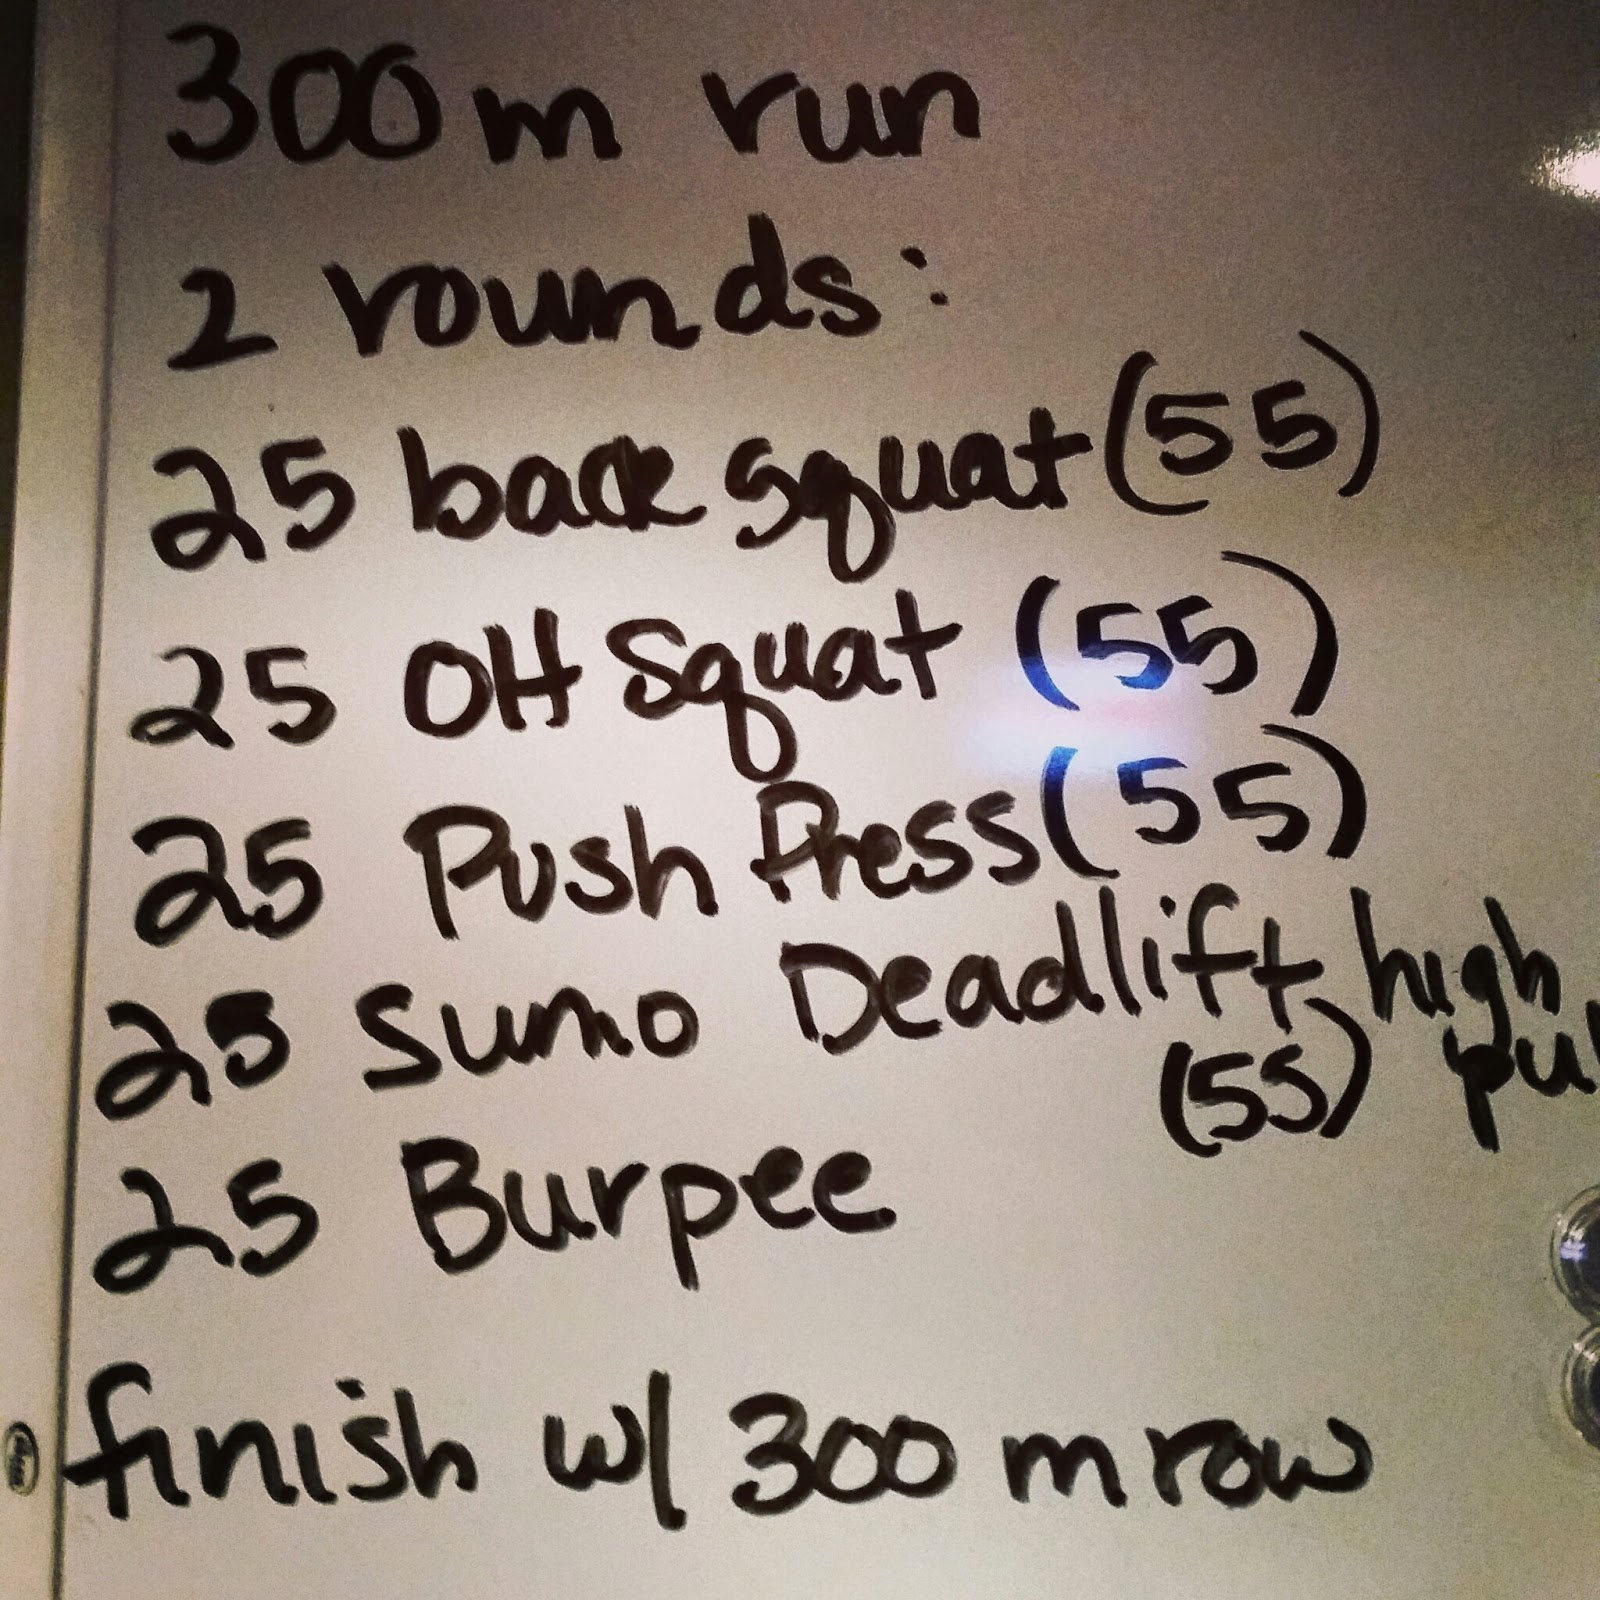 300m run
2 rounds:
25 back squat (55)
25 OH Squat (55)
25 Push Press (55)
25 Sumo Deadlift high
(55) pul
25 Burpee
finish w/ 300 m row